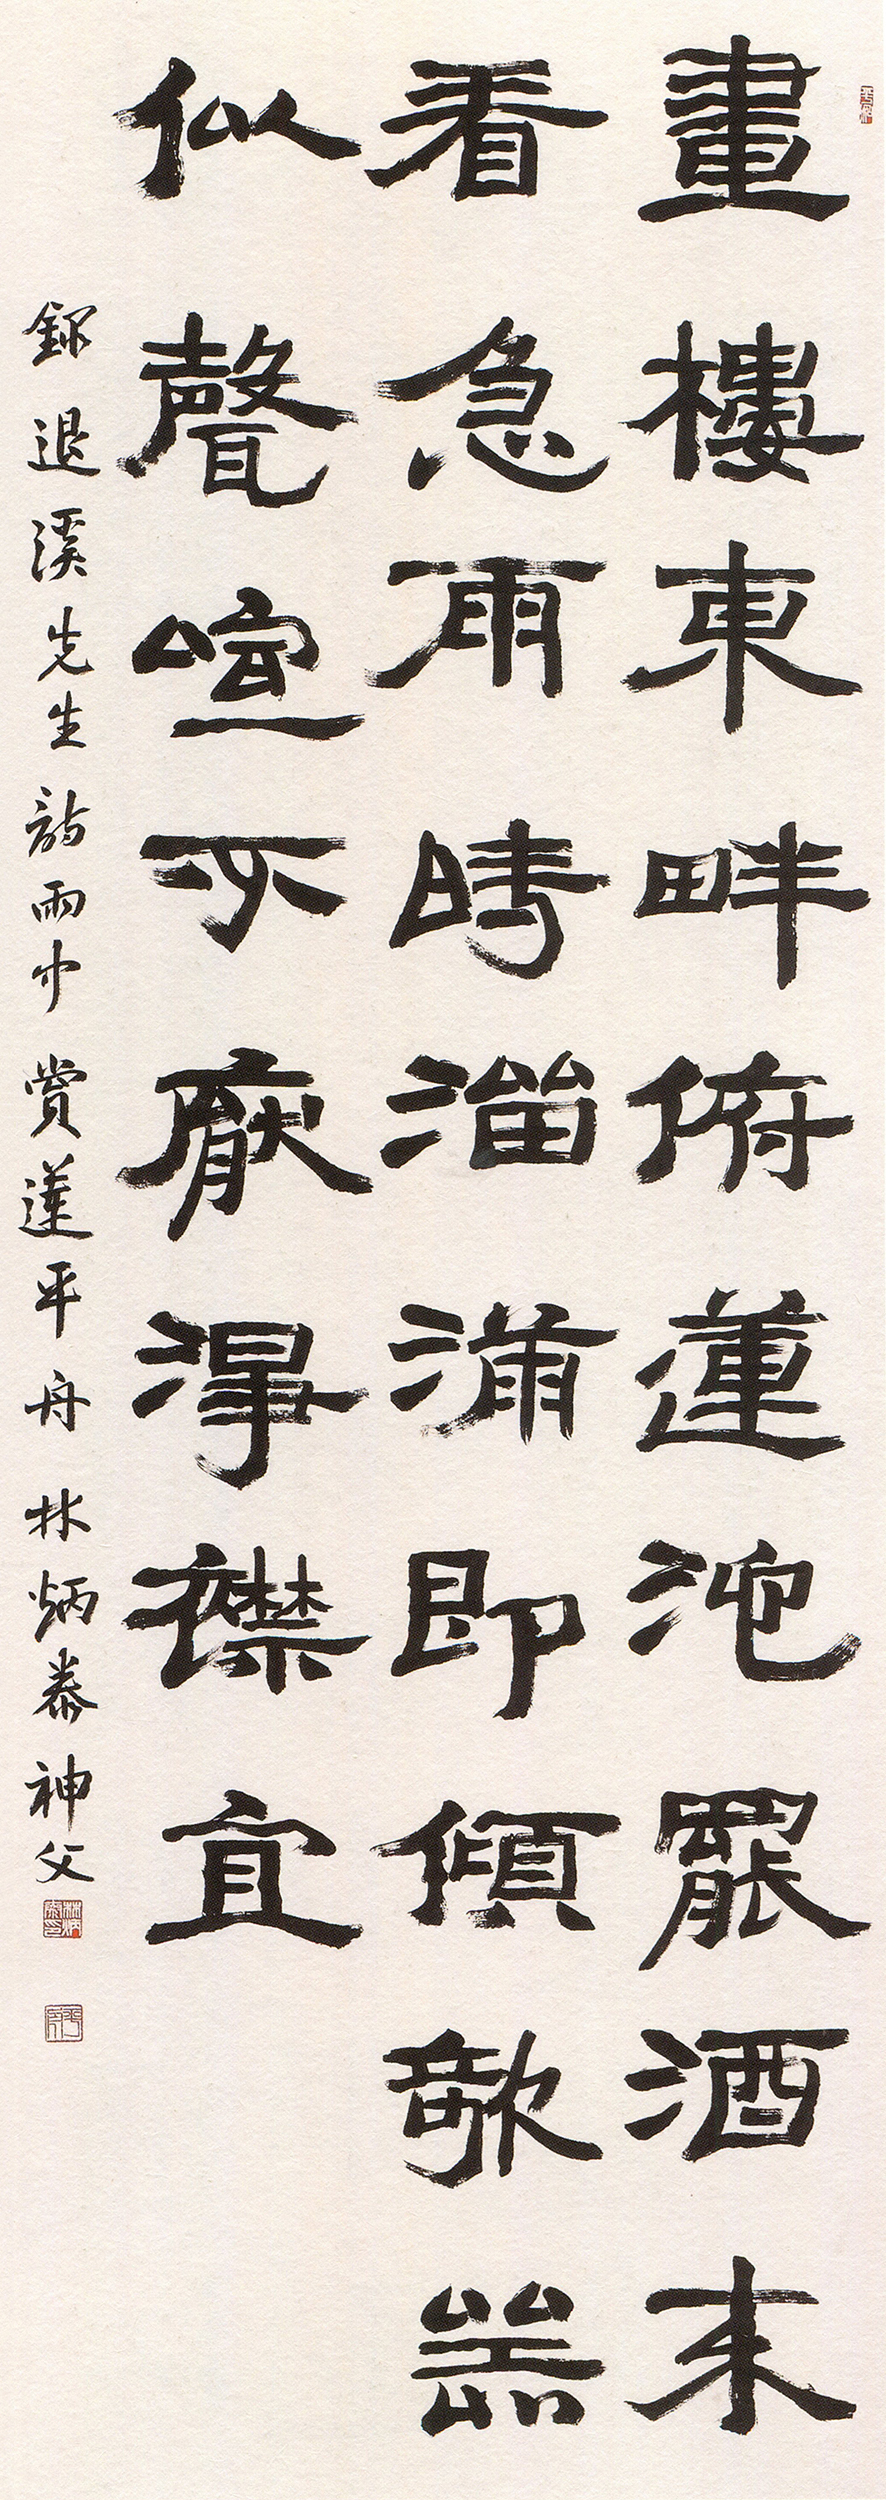 畫樓東畔俯蓮池罷酒来
看急雨時溜滿即傾欹器
似聲喧不厭淨襟宜
錄退溪先生詩雨中賞蓮平舟 林炳泰神父